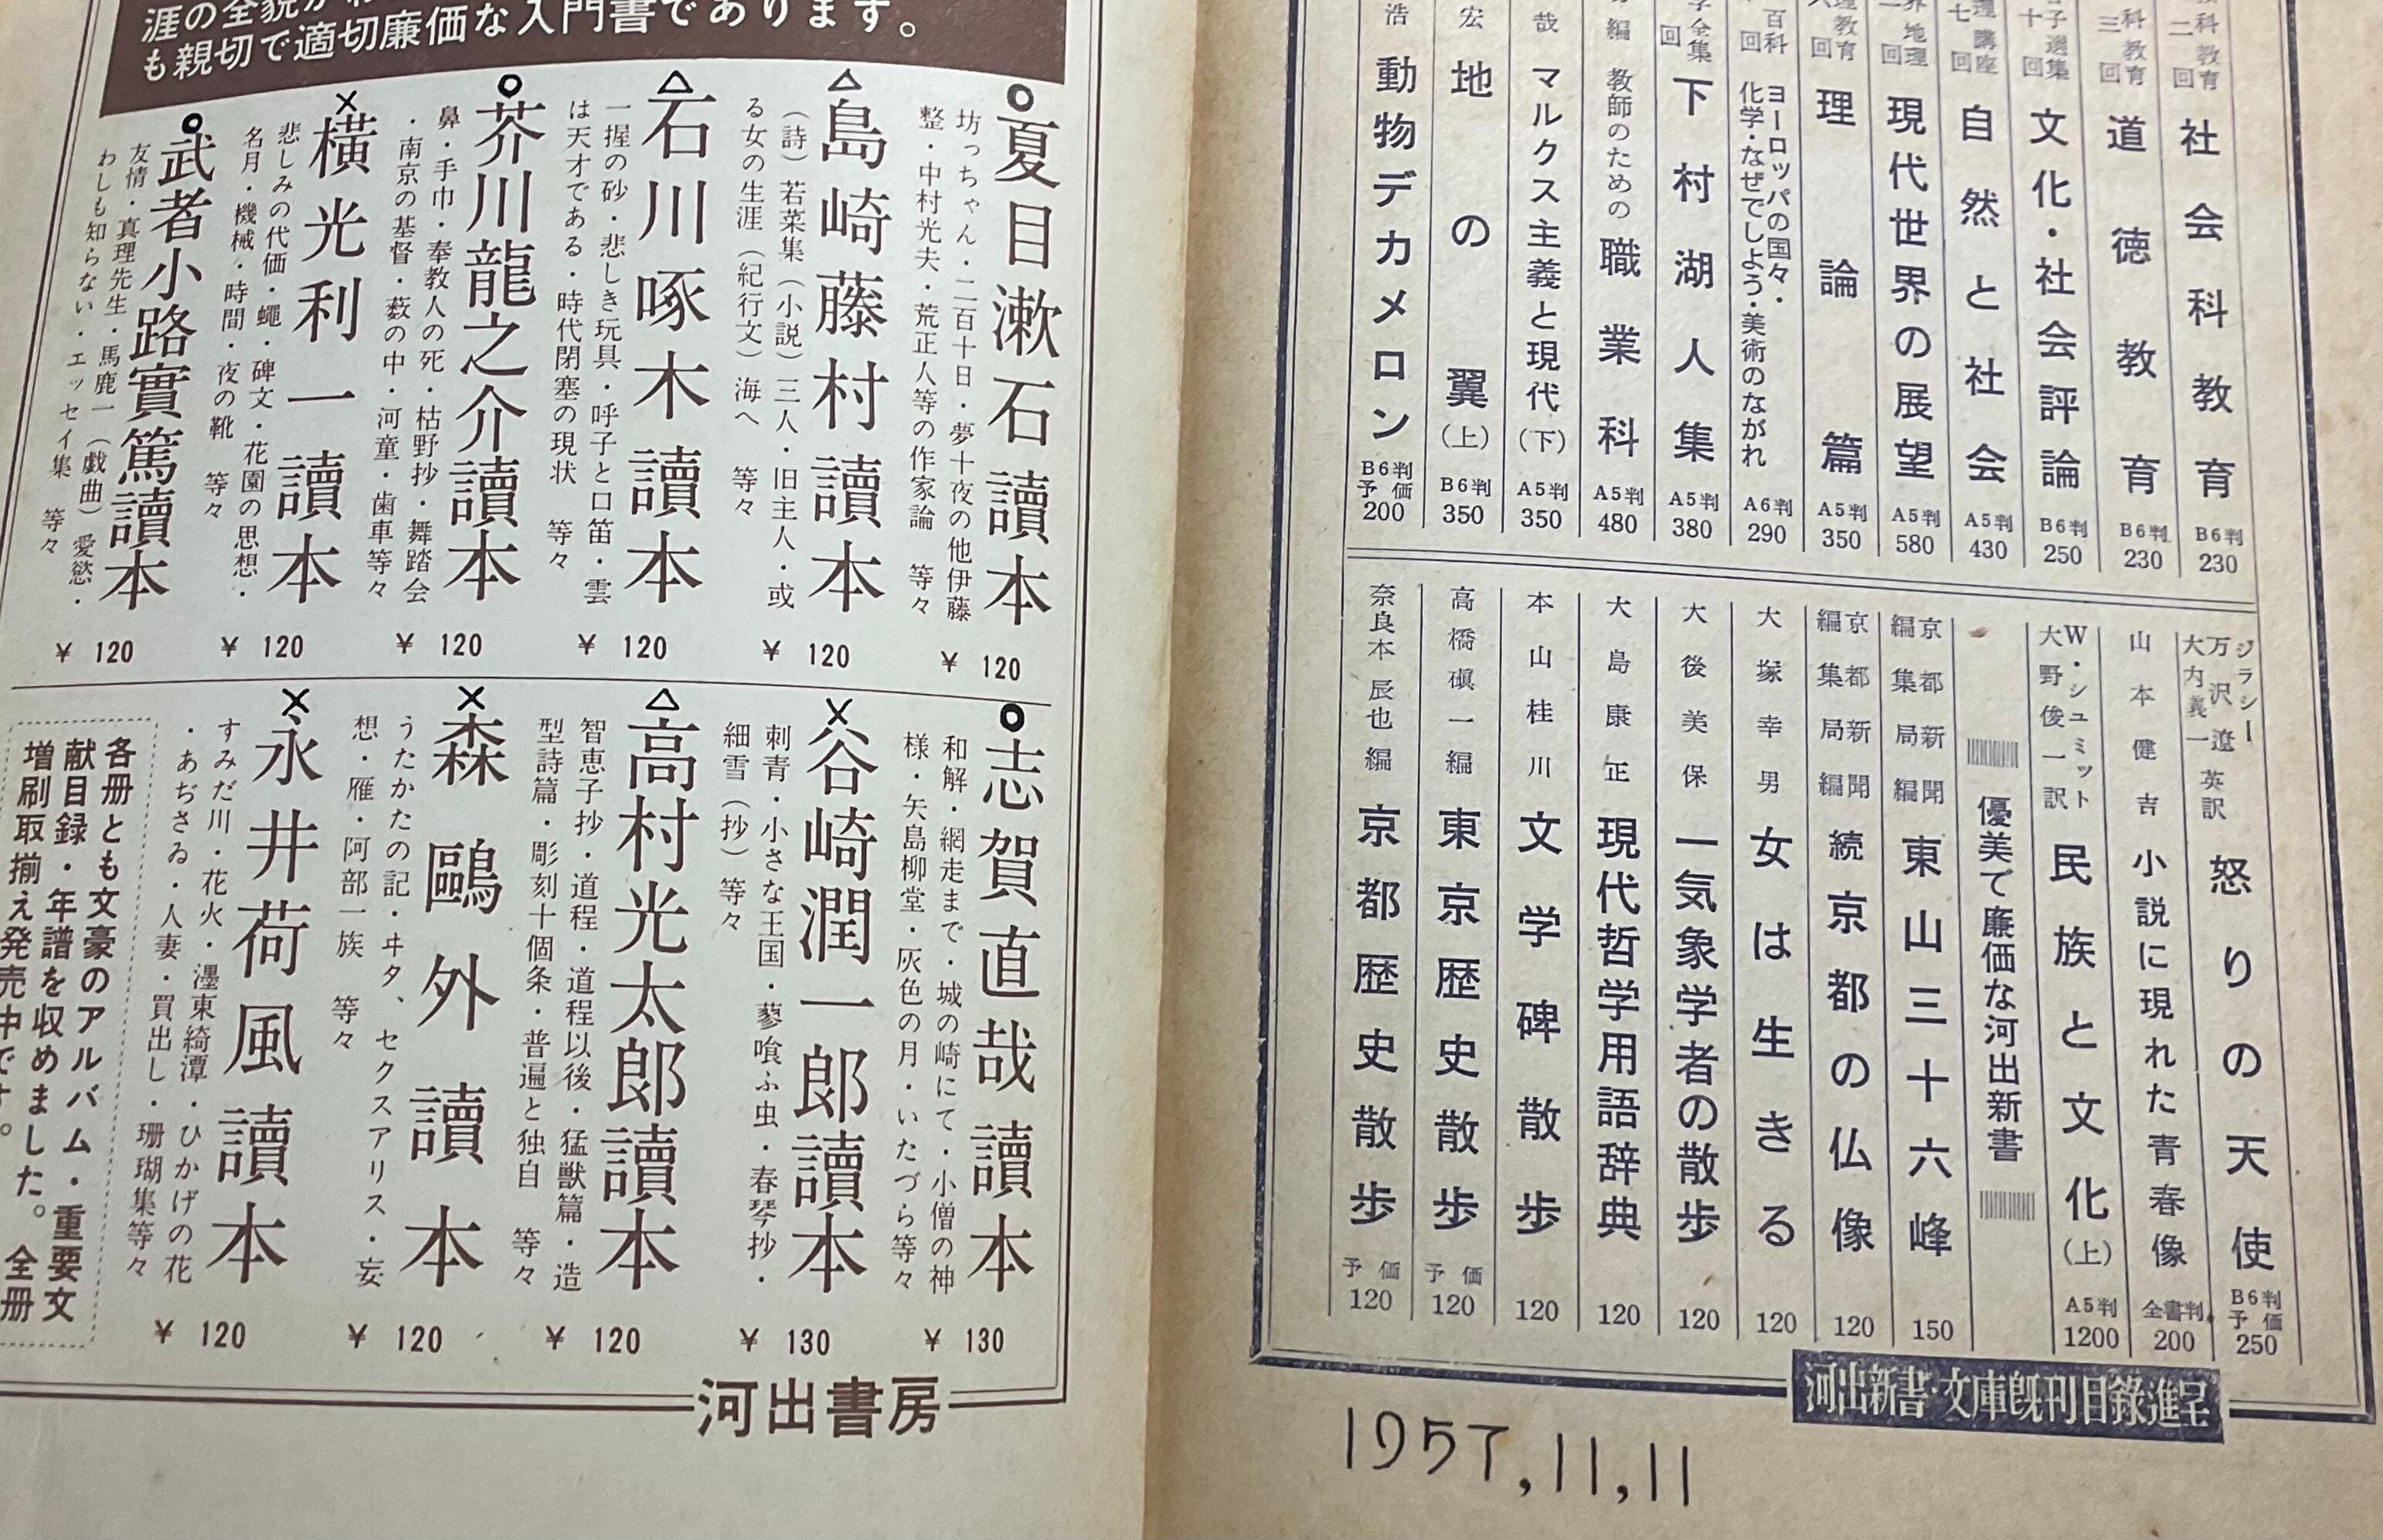 も親切で適切廉価な入門書であります。
○
夏目漱石讀本
坊っちゃん・二百十日・夢十夜の他伊藤
整・中村光夫・荒正人等の作家論 等々
¥ 120
△
島崎藤村讀本
(詩)若菜集(小説)三人・旧主人・或
る女の生涯(紀行文)海へ 等々
¥ 120
△
石川啄木讀本
一握の砂・悲しき玩具・呼子と口笛・雲
は天才である・時代閉塞の現状 等々
¥ 120
○
芥川龍之介讀本
鼻・手巾・奉教人の死・枯野抄・舞踏会
・南京の基督・薮の中・河童・歯車等々
¥ 120
×
横光利一讀本
悲しみの代価・蠅・碑文・花園の思想・
名月・機械・時間・夜の靴 等々
¥ 120
○
武者小路實篤讀本
友情・真理先生・馬鹿一(戯曲)愛慾・
わしも知らない・エッセイ集 等々
¥ 120
○
志賀直哉讀本
和解・網走まで・城の崎にて・小僧の神
様・矢島柳堂・灰色の月・いたづら等々
¥ 130
×
谷崎潤一郎讀本
刺青・小さな王国・蓼喰ふ虫・春琴抄・
細雪(抄)等々
¥ 130
△
高村光太郎讀本
智恵子抄・道程・道程以後・猛獣篇・造
型詩篇・彫刻十個条・普遍と独自 等々
¥ 120
×
森鷗外讀本
うたかたの記・ヰタ、セクスアリス・妄
想・雁・阿部一族 等々
¥ 120
×
永井荷風讀本
すみだ川・花火・濹東綺譚・ひかげの花
・あぢさゐ・人妻・買出し・珊瑚集等々
¥ 120
各冊とも文豪のアルバム・重要文
献目録・年譜を収めました。全冊
増刷取揃え発売中です。
河出書房
科教育 二回 社会科教育 B6判 230
科教育 三回 道徳教育 B6判 230
選集 十回 文化・社会評論 B6判 250
講座 七回 自然と社会 A5判 430
地理 一回 現代世界の展望 A5判 580
教育 回 理論篇 A5判 350
百科 回 ヨーロッパの国々・
化学・なぜでしよう・美術のながれ A6判 290
全集 回 下村湖人集 A5判 380
編 教師のための 職業科 A5判 480
哉 マルクス主義と現代(下) A5判 350
宏 地の翼(上) B6判 350
浩 動物デカメロン B6判 予価 200
ジラシー
万沢遼
大内義一 英訳 怒りの天使 B6判 予価 250
山本健吉 小説に現れた青春像 全書判 200
W・シュミット
大野俊一訳 民族と文化(上) A5判 1200
優美で廉価な河出新書
京都新聞
編集局編 東山三十六峰 150
京都新聞
編集局編 続京都の仏像 120
大塚幸男 女は生きる 120
大後美保 一気象学者の散歩 120
大島康正 現代哲学用語辞典 120
本山桂川 文学碑散歩 120
高橋磌一編 東京歴史散歩 予価 120
奈良本辰也編 京都歴史散歩 予価 120
河出新書・文庫既刊目録進呈
1957,11,11